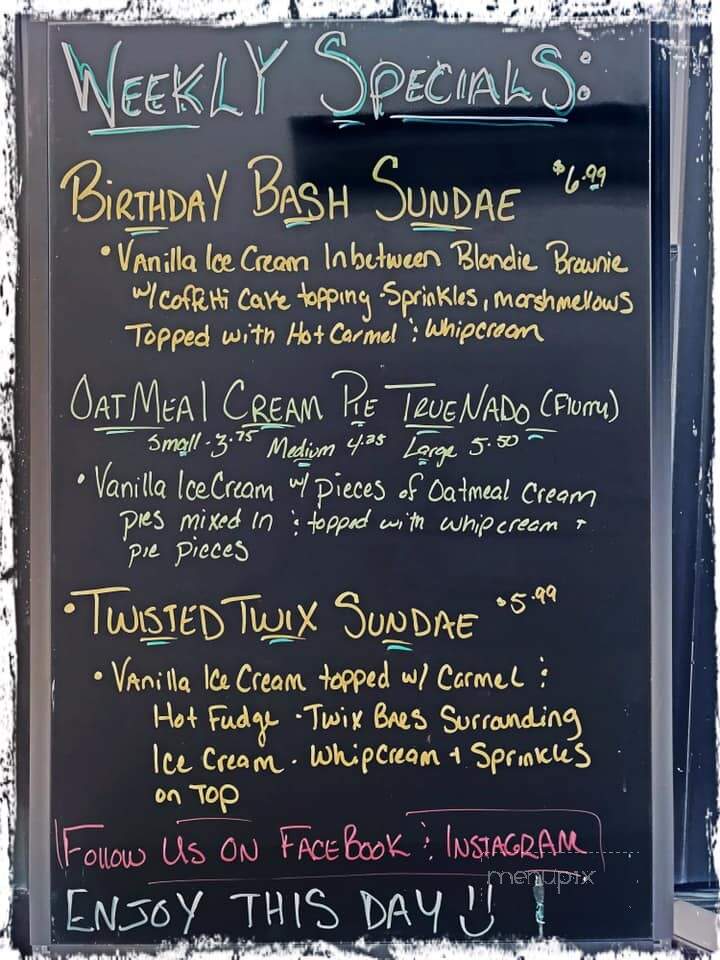 WEEKLY SPECIALS:
BIRTHDAY BASH SUNDAE $6.99
• VANILLA ICE CREAM INbetween Blondie Brownie
w/ coffetti Cake topping - Sprinkles, marshmellows
Topped with Hot Carmel & Whipcream
OATMEAL CREAM PIE TRUENADO (Flurry)
Small - 3.75 Medium 4.25 Large 5.50
• Vanilla Ice Cream w/ pieces of Oatmeal Cream
pies mixed in & topped with whip cream +
pie pieces
• TWISTED TWIX SUNDAE $5.99
• VANILLA ICE CREAM topped w/ Carmel &
Hot Fudge - Twix Bars Surranding
Ice Cream - Whipcream + Sprinkles
on TOP
FOLLOW US ON FACEBOOK & INSTAGRAM
menupix
ENJOY THIS DAY